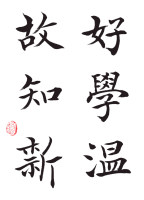 好學溫
故知新